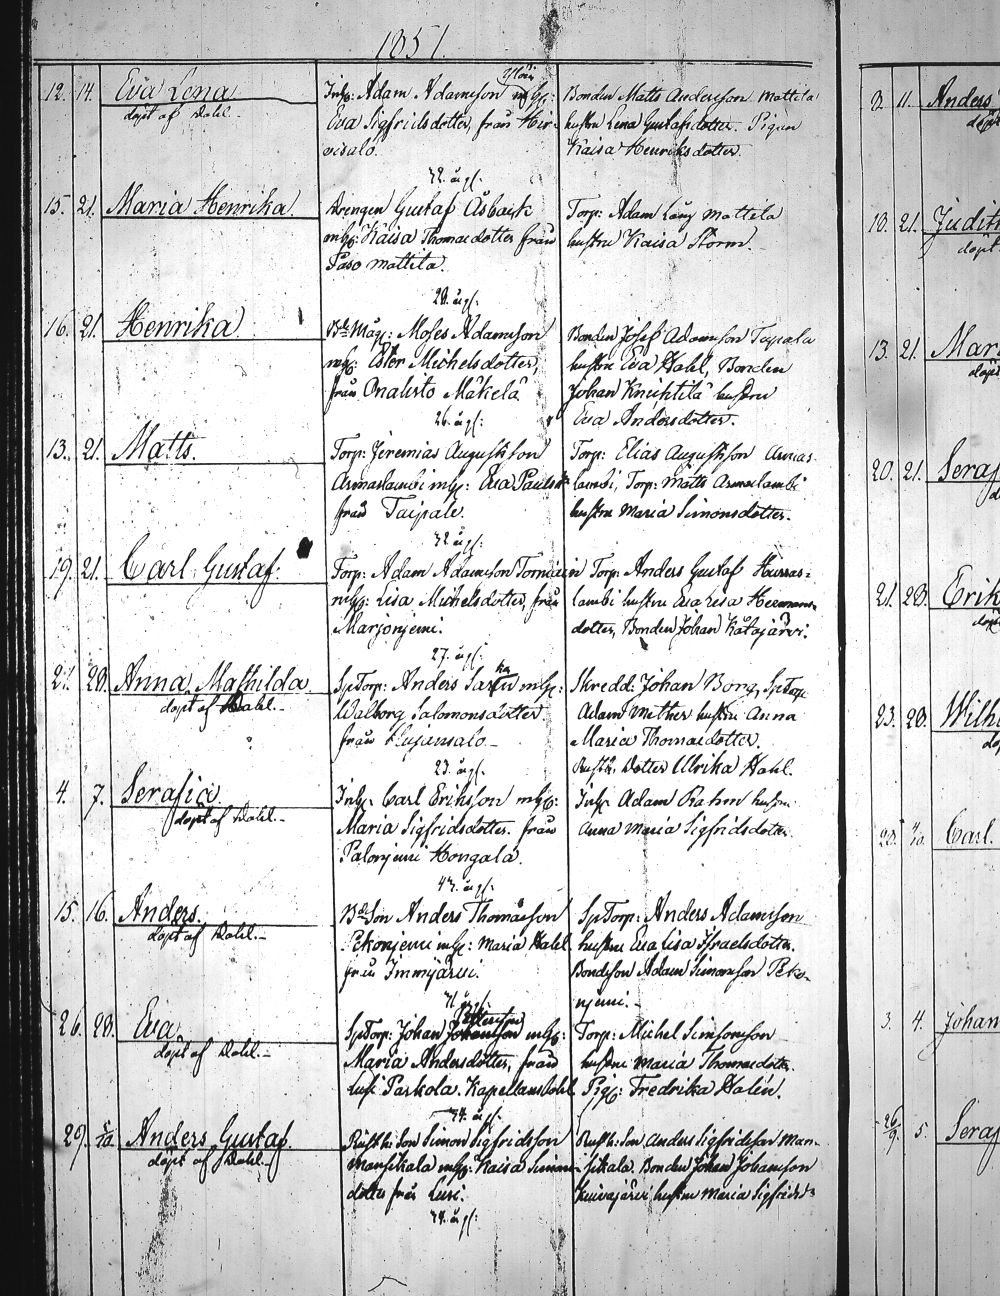 1851.
12. 14. Eva Lena
döpt af Dahl.
Inh: Adam Adamsson mhg:
Eva Sigfridsdotter, från Hir-
visalo.
32. årg:
Bonden Matts Andersson Mattila
hustru Lena Gustafsdotter. Pigan
Kaisa Henriksdotter.
15. 21. Maria Henrika.
Drengen Gustaf Åsback
mhg: Kaisa Thomasdotter från
Paso Mattila.
29. årg:
Torp: Adam Lång Mattila
hustru Kaisa Storm.
16. 21. Henrika
Måg: Moses Adamsson
mhg: Ester Michelsdotter,
från Onalisto Mäkelä
26. årg:
Bonden Josef Adamsson Taipala
hustru Eva Hahl, Bonden
Johan Knuhtila hustru
Eva Andersdotter.
13. 21. Matts.
Torp: Jeremias Augustsson
Armaslambi mhg: Eva Paulsdr
från Taipale.
32. årg:
Torp: Elias Augustsson Armas-
lambi, Torp: Matts Armaslambi
hustru Maria Simonsdotter.
19. 21. Carl Gustaf.
Torp: Adam Adamsson Torniain
mhg: Lisa Michelsdotter, från
Marjonjemi.
27. årg:
Torp: Anders Gustaf Harras-
lambi hustru Eva Lisa Hermans-
dotter, Bonden Johan Kåtajärvi.
27. 28. Anna Mathilda
döpt af Dahl.
SpTorp: Anders mhg:
Walborg Salomonsdotter
från Kujansalo
23. årg:
Skredd: Johan Borg, SpTorp:
Adam Mether hustru Anna
Maria Thomasdotter.
Rusth. Dotter Ulrika Hahl.
4. 7. Serafia.
döpt af Dahl.
Inh: Carl Eriksson mhg:
Maria Sigfridsdotter. från
Palonjemi Hongala.
43. årg:
Inh: Adam Rahm hustru
Anna Maria Sigfridsdotter.
15. 16. Anders.
döpt af Dahl.
BdeSon Anders Thomasson
Pekonjemi mhg: Maria Hahl
från Immjärvi.
31. årg:
SpTorp: Anders Adamsson
hustru Eva Lisa Israelsdotter.
Bondeson Adam Simonsson Peko-
njemi.
26. 28. Eva
döpt af Dahl.
SpTorp: Johan mhg:
Maria Andersdotter, från
Lusi Parkola. Kapellansbohl
34. årg:
Torp: Michel Simonsson
hustru Maria Thomasdotter.
Pig: Fredrika Halén.
29. 5/10. Anders Gustaf.
döpt af Dahl.
Rusth: Son Simon Sigfridsson
Mansikala mhg: Kaisa Simons-
dotter från Lusi.
34. årg:
Rusth: Son Anders Sigfridsson Man-
sikala. Bonden Johan Johansson
Kuivajärvi hustru Maria Sigfridsdr
9. 11. Anders
döpt
10. 21. Judith
döpt
13. 21. Mar
döpt
20. 21. Seraf
21. 28. Erik
döpt
23. 28. Wilh
28. 4/10. Carl.
3. 4. Johan
26/9. 5. Seraf